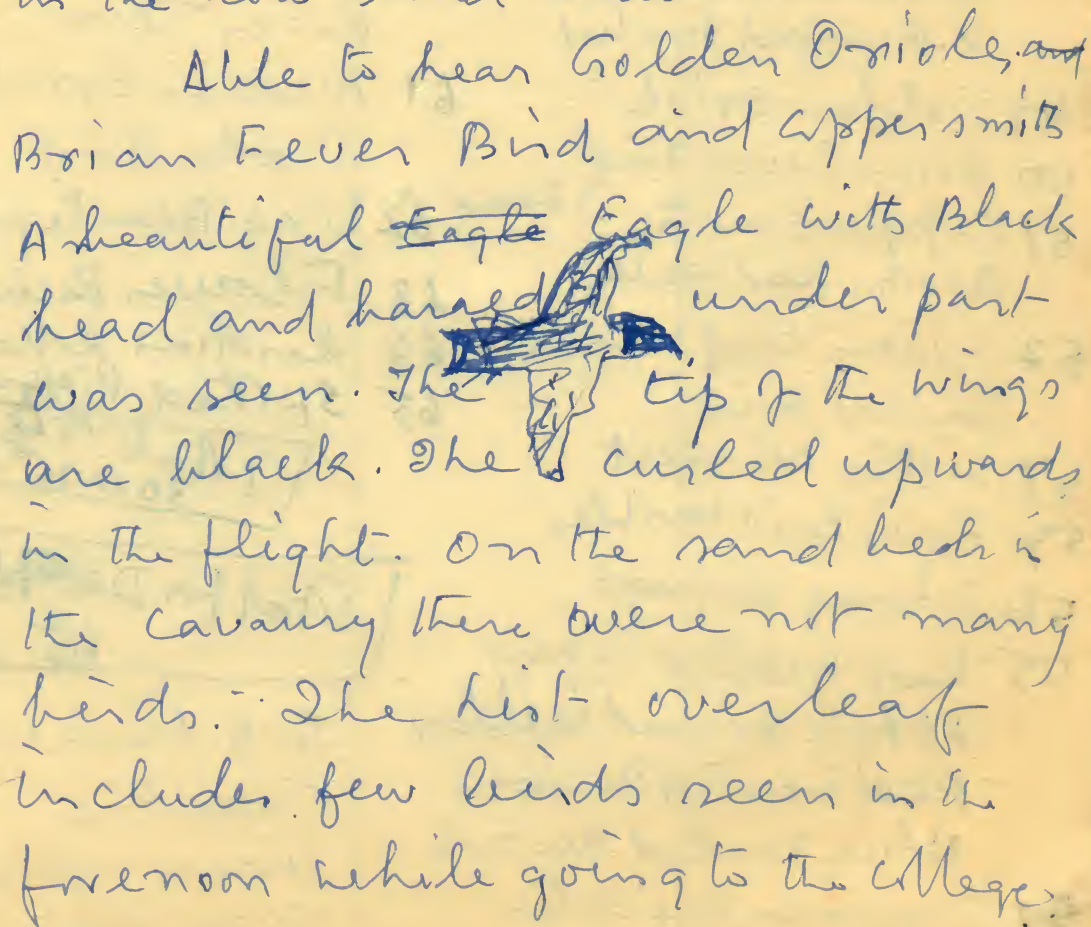 Able to hear Golden Oriole, and
Brian Fever Bird and coppersmith
A beautiful Eagle Eagle with Black
head and barred under part
was seen. The tip of the wings
are black. The curled upwards
in the flight. On the sand beds in
the Cavaury there were not many
birds. The list overleaf
includes few birds seen in the
forenoon while going to the college.